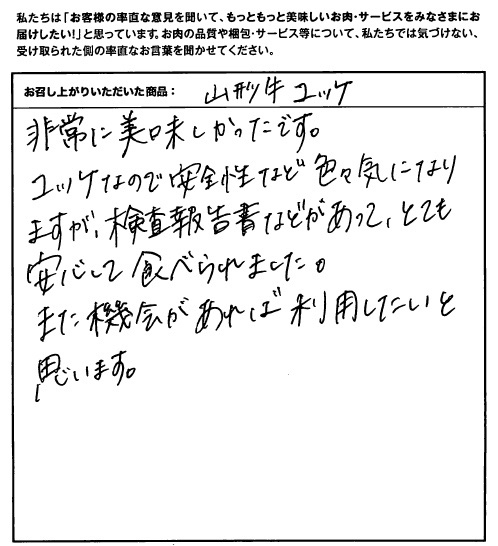 私たちは「お客様の率直な意見を聞いて、もっともっと美味しいお肉・サービスをみなさまにお
届けしたい!」と思っています。お肉の品質や梱包・サービス等について、私たちでは気づけない、
受け取られた側の率直なお言葉を聞かせてください。
お召し上がりいただいた商品： 山形牛 ユッケ
非常に美味しかったです。
ユッケなので安全性など色々気になり
ますが、検査報告書などがあって、とても
安心して食べられました。
また機会があれば利用したいと
思います。